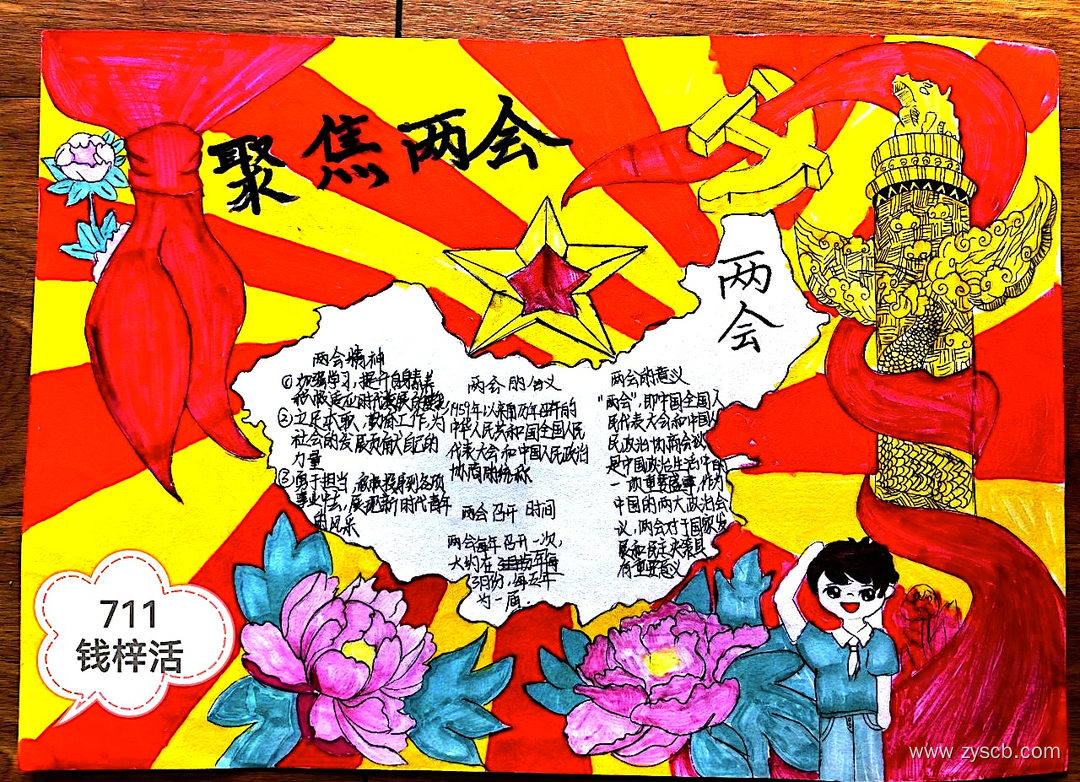 聚焦两会
两会
两会精神
①加强学习,提升自身素养
积极适应时代发展
②立足本职,勤奋工作,为
社会的发展贡献自己的
力量
③勇于担当,积极投身到各项
事业中去,展现新时代青年
的风采
两会的含义
1959年以来历年召开的
中华人民共和国全国人民
代表大会和中国人民政治
协商的统称
两会召开时间
两会每年召开一次,
大约在每年
3月份,每五年
为一届.
两会的意义
"两会",即中国全国人
民代表大会和中国人
民政治协商会议
是中国政治生活中的
一项重要盛事,作为
中国的两大政治会
议,两会对于国家发
展和民主决策具
有重要意义
711
钱梓活
www.zyscb.com